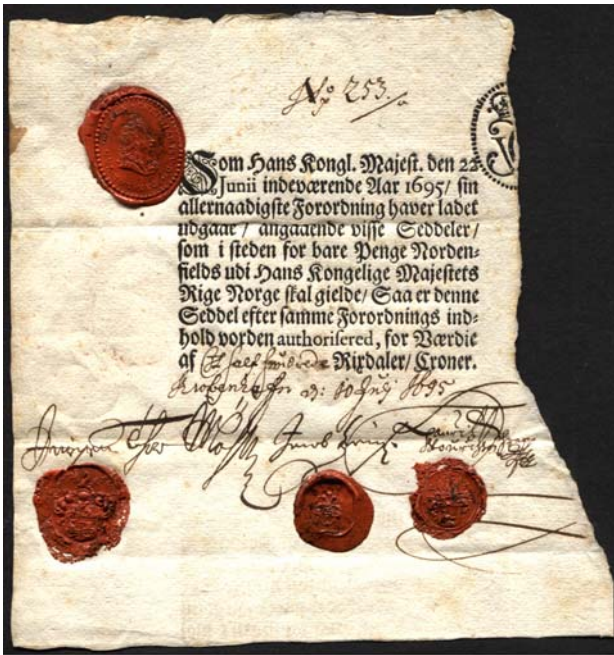 No 253.
Som Hans Kongl. Majest. den 22
Junii indeværende Aar 1695/ sin
allernaadigste Forordning haver ladet
udgaae/ angaaende visse Seddeler/
som i steden for bare Penge Norden-
fields udi Hans Kongelige Majestets
Rige Norge skal gielde/ Saa er denne
Seddel efter samme Forordnings ind-
hold vorden authorisered, for Værdie
af Et halft hundrede Rixdaler/ Croner.
10 Julij 1695
Thor Møhlen